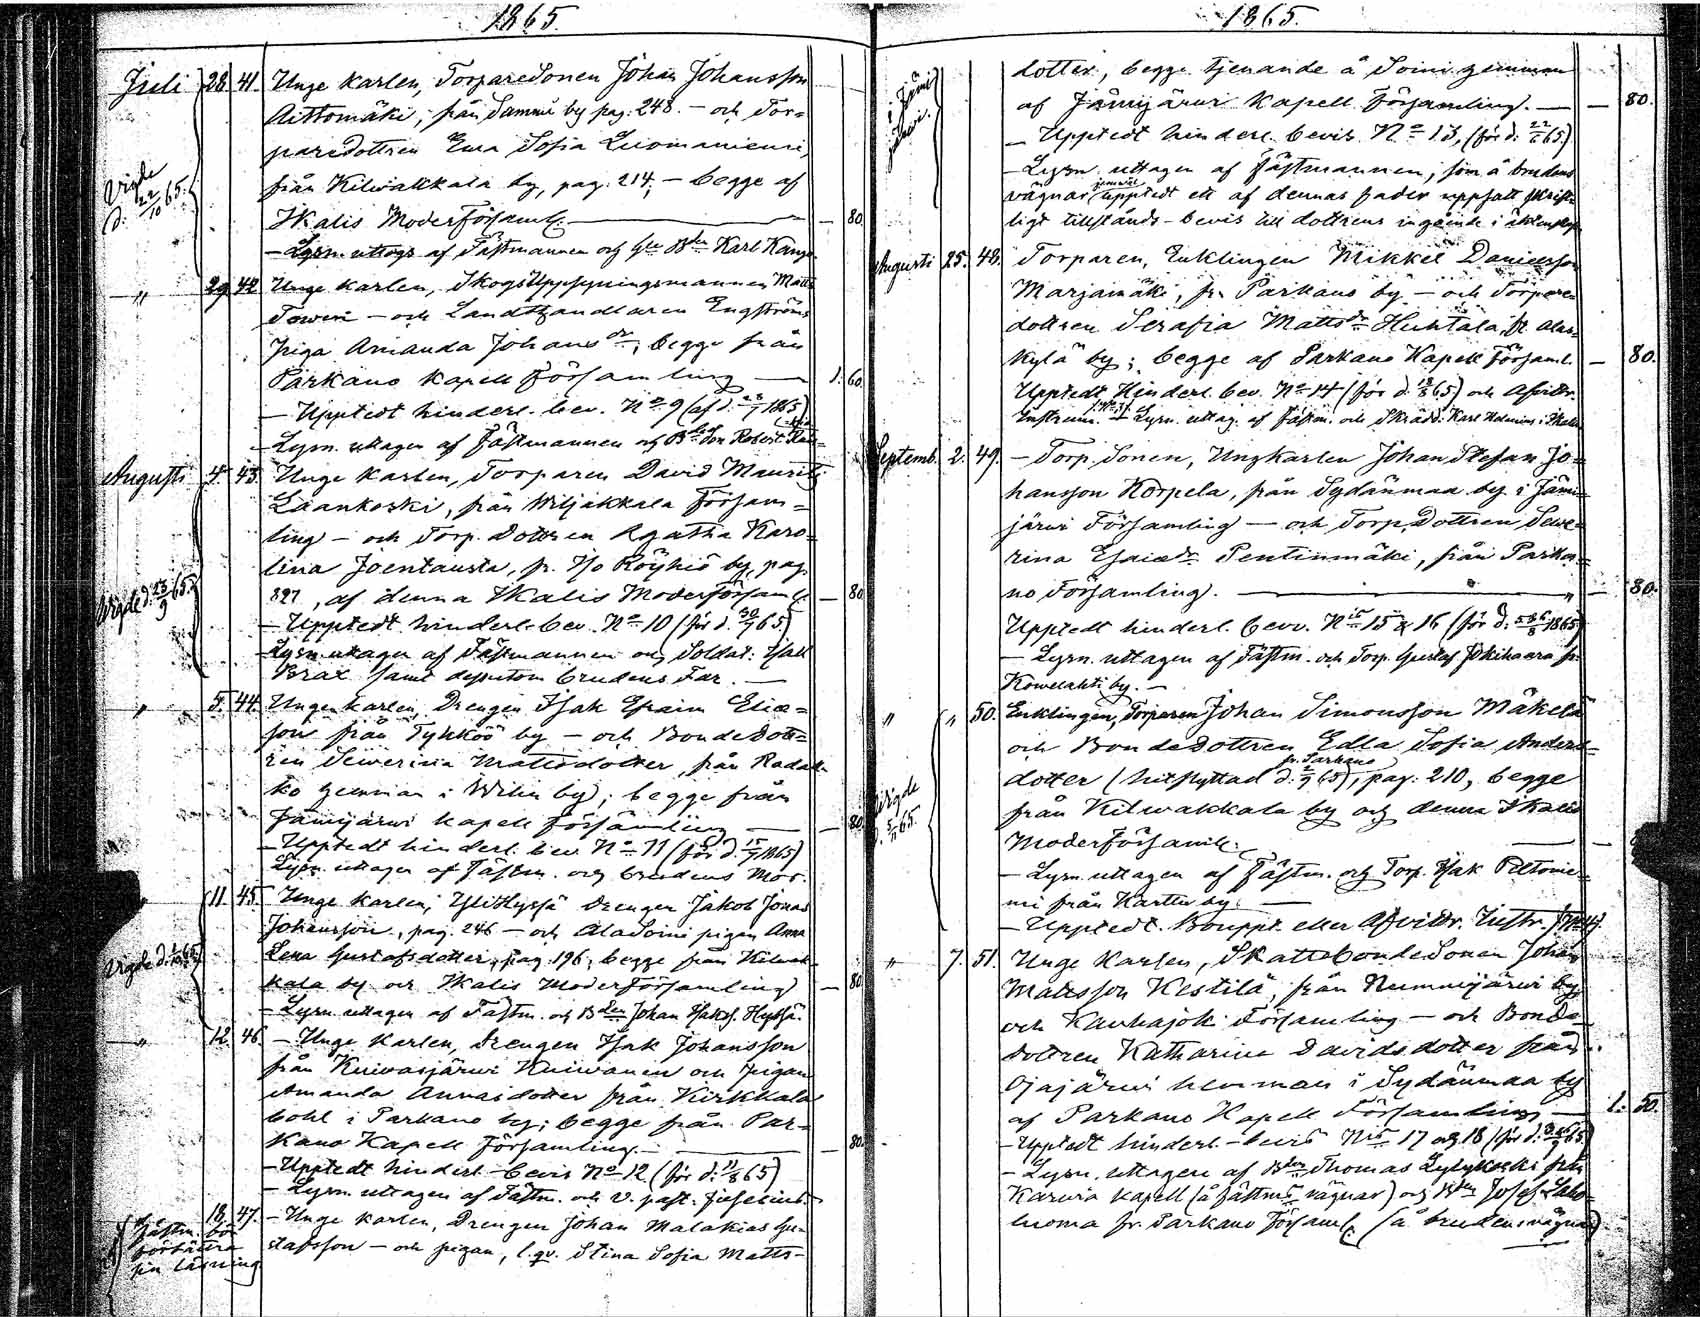 1865.
Juli 28. 41. Unge karlen, Torparesonen Johan Johansson
Aittomäki, från Sammi by pag. 248. — och Tor=
paredottren Eva Sofia Luomaniemi,
från Kilwakkala by, pag. 214, — begge af
Ikalis Moderförsaml. — 80.
Vigde d. 22/10 65.
— Lysn. uttogs af Fästmannen och Karl
" 29. 42. Unge karlen, SkogsUppsyningsmannen Matts
Toweri — och Landthandlaren Engströms
Piga Amanda Johansdr, begge från
Parkano Kapell Församling — 1. 60.
— Upptedt hinderl. bev. No 9 (af d. 23/7 1865)
— Lysn. uttagen af Fästmannen och Robert
Augusti 4. 43. Unge karlen, Torparen David Maurits
Laankoski, från Wiljakkala Försam=
ling — och Torp. Dottren Agatha Karo=
lina Joentausta, fr. Iso Röyhiö by, pag.
327, af denna Ikalis Moderförsaml. — 80.
Vigde d. 23/9 65.
— Upptedt hinderl. bev. No 10 (för d. 30/7 65.)
— Lysn. uttagen af Fästmannen och Soldat. Isak
Brax samt brudens Far. —
" 5. 44. Unge karlen, Drengen Isak Efraim Elias=
son från Tykköö by — och BondeDott=
ren Sewerina Mattsdotter, från
ko hemman i by); begge från
Jämijärwi kapell församling — 80.
— Upptedt hinderl. bev. No 11 (för d. 15/7 1865)
Lysn. uttagen af Fästm. och brudens Mor.
" 11. 45. — Unge karlen, Ylihyysä drengen Jakob Jonas
Johansson, pag. 246 — och AlaSoini pigan Anna
Lena Gustafsdotter, pag. 196, begge från Kilwak=
kala by och Ikalis Moderförsamling — 80.
Vigde d.
— Lysn. uttagen af Fästm. och Bden Johan
" 12. 46. — Unge karlen, Drengen Isak Johansson
från Kuivasjärwi Kuiwanen och Pigan
Amanda Annaidotter från Kirkkala
bohl i Parkano by; begge från Par=
kano Kapell Församling. — 80.
— Upptedt hinderl. bevis No 12 (för d. 11/8 65)
— Lysn. uttagen af Fästm. och v. past.
18. 47. — Unge karlen, Drengen Johan Malakias Gu=
stafsson — och pigan, l. qv. Stina Sofia Matts-
Fästm. bör
förbättra
sin läsning
1865.
dotter, begge tjenande å Soini hemman
af Jämijärwi Kapell Församling. — 80.
i Jämijärwi.
— Upptedt hinderl. bevis No 13, (för d. 22/7 65)
— Lysn. uttagen af Fästmannen, som å brudens
vägnar jemväl upptedt ett af dennas fader uppsatt skrift=
ligt tillstånds-bevis till dottrens ingående i äktenskap
Augusti 25. 48. Torparen, Enklingen Mikkel Danielsson
Marjamäki, fr. Parkano by — och Torpare=
dottren Serafia Mattsdr Huhtala, fr. Alas=
kylä by; begge af Parkano Kapell Församl. — 80.
Upptedt Hinderl. bev. No 14 (för d. 13/8 65) och Afvittr.
Instrum. — Lysn. uttag. af Fästm. och Skrädd. Karl
Septemb. 2. 49. — Torp. Sonen, Ungkarlen Johan Stefan Jo=
hansson Korpela, från Sydänmaa by i Jämi=
järwi Församling — och Torp. Dottren, Sewe=
rina Esaiædr Pentinmäki, från Parka=
no Församling. — 80.
Upptedt hinderl. bevv. No 15 & 16 (för d. 1865)
— Lysn. uttagen af Fästm. och Torp. Gustaf Jokihaara fr.
Kowelahti by. —
" " 50. Enklingen, Torparen Johan Simonsson Mäkelä
och Bondedottren Edla Sofia Anders=
dotter (hitflyttad fr. Parkano d. 2/7 65), pag. 210, begge
från Kilwakkala by och denna Ikalis
Moderförsaml. —
Vigde d. 5/11 65.
— Lysn. uttagen af Fästm. och Torp. Isak Peltonie=
mi från Karttu by. —
— Upptedt Bouppt. eller Afvittr. Instr.
" 7. 51. Unge karlen, SkatteBondeSonen Johan
Mattsson Kestilä, från Nummijärwi by
och Kauhajoki Församling — och Bonde=
dottren Katharina Davidsdotter från
Ojajärwi hemman i Sydänmaa by
af Parkano Kapell Församling — 1. 50.
— Upptedt hinderl. bevis No 17 och 18
— Lysn. uttagen af Bden Thomas Lylykoski från
Karwia kapell (å fästms vägnar) och Bden Josef
luoma fr. Parkano Församl. (å brudens vägnar)